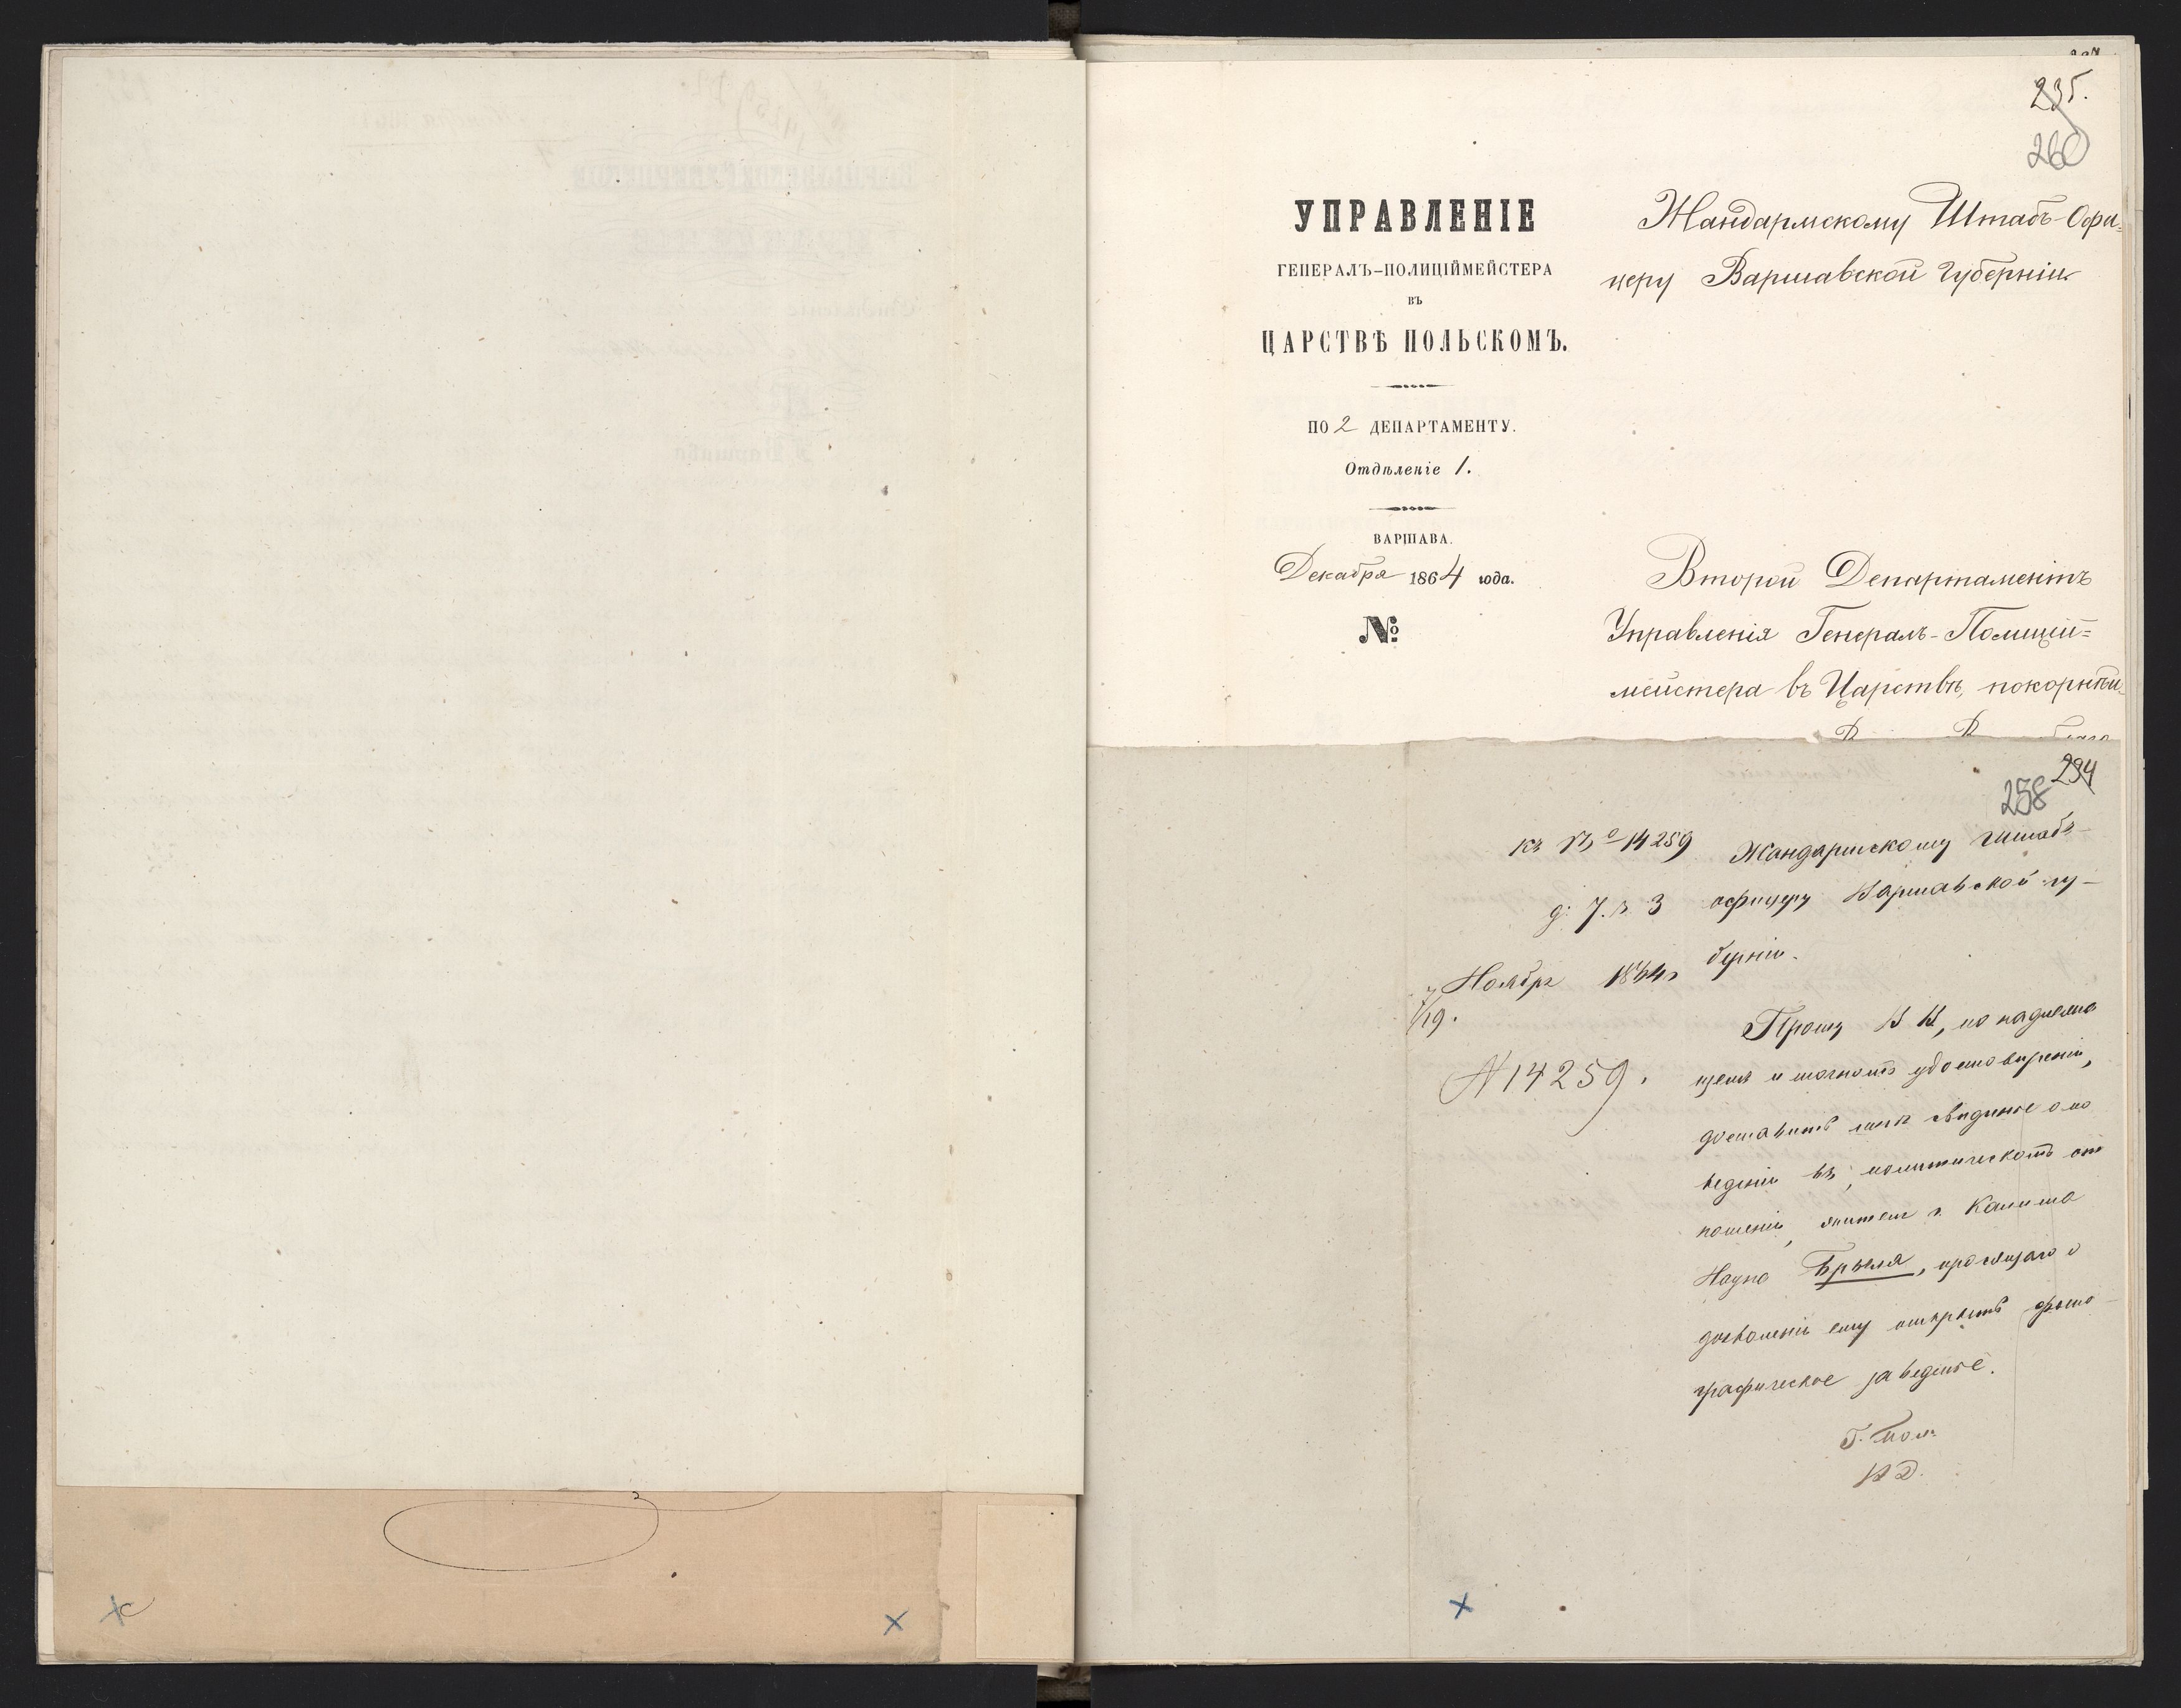 235.
260
УПРАВЛЕНІЕ
ГЕНЕРАЛЪ-ПОЛИЦІЙМЕЙСТЕРА
ВЪ
ЦАРСТВѢ ПОЛЬСКОМЪ.
ПО 2 ДЕПАРТАМЕНТУ.
Отдѣленіе 1.
ВАРШАВА.
Декабря 1864 года.
№
Жандармскому Штабъ-Офи-
церу Варшавской Губерніи
Второй Департаментъ
Управленія Генералъ-Полицій-
мейстера въ Царствѣ, покорнѣй-
294
258
къ № 14259
д: 7. в. 3
Ноября 1864 г
7/19.
N 14259.
Жандармскому Штабъ-
офицеру Варшавской гу-
берніи.
Прошу В В, по надлежа
щемъ и точномъ удостовѣреніи,
доставить мнѣ свѣдѣніе о по
веденіи въ политическомъ от
ношеніи, жителя г. Калиша
Брыля, просящаго о
дозволеніи ему открыть фото-
графическое заведеніе.
Г. Пол.
В Д.